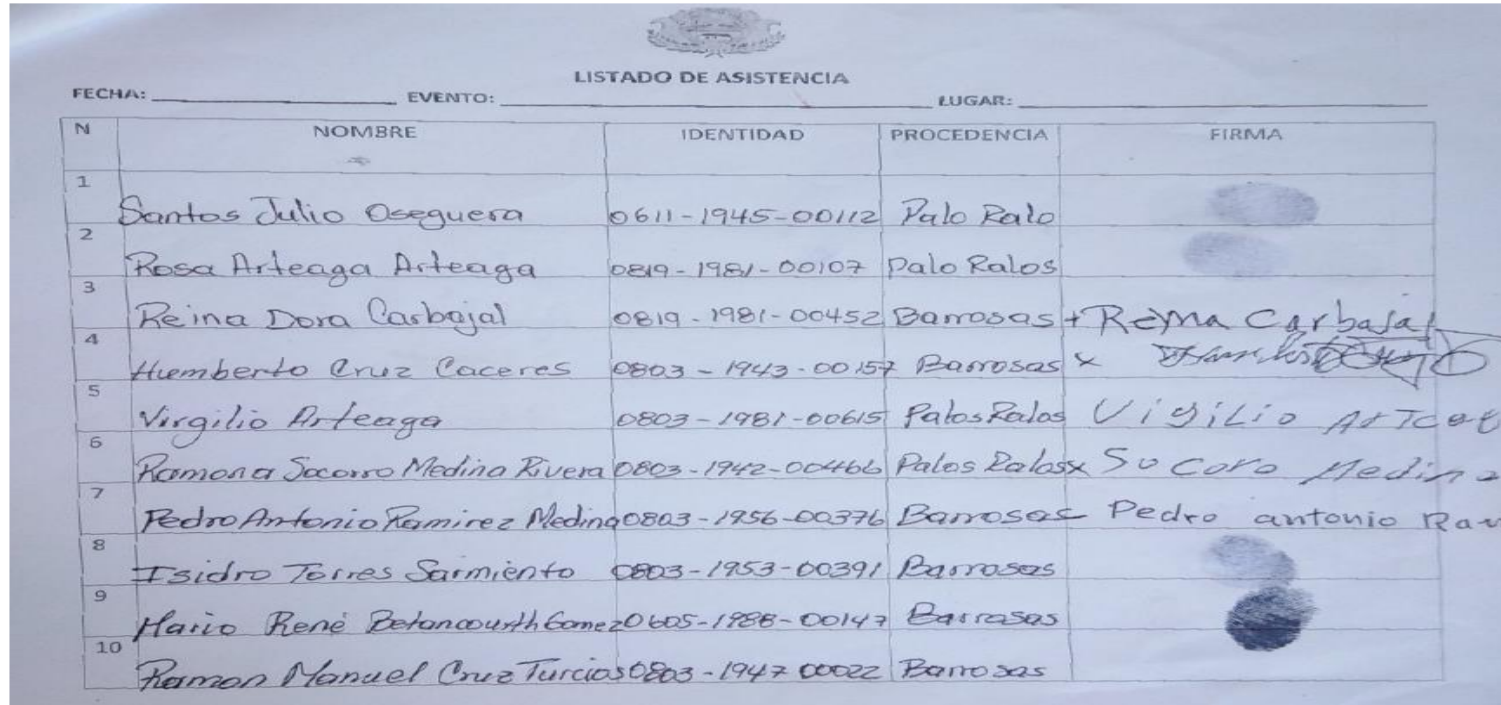 LISTADO DE ASISTENCIA
FECHA: EVENTO: LUGAR:
N NOMBRE IDENTIDAD PROCEDENCIA FIRMA
1 Santos Julio Oseguera 0611-1945-00112 Palo Ralo
2 Rosa Arteaga Arteaga 0819-1981-00107 Palo Ralos
3 Reina Dora Carbajal 0819-1981-00452 Barrosas + Reyna Carbajal
4 Humberto Cruz Caceres 0803-1943-00157 Barrosas x
5 Virgilio Arteaga 0803-1981-00615 Palos Ralos Vigilio
6 Ramona Socorro Medina Rivera 0803-1942-00466 Palos Ralos x Socoro Medina
7 Pedro Antonio Ramirez Medina 0803-1956-00376 Barrosas Pedro antonio
8 Isidro Torres Sarmiento 0803-1953-00391 Barrosas
9 Mario René Betancourth Gomez 0605-1988-00147 Barrasas
10 Ramon Manuel Cruz Turcios 0803-1947 00022 Barrosas